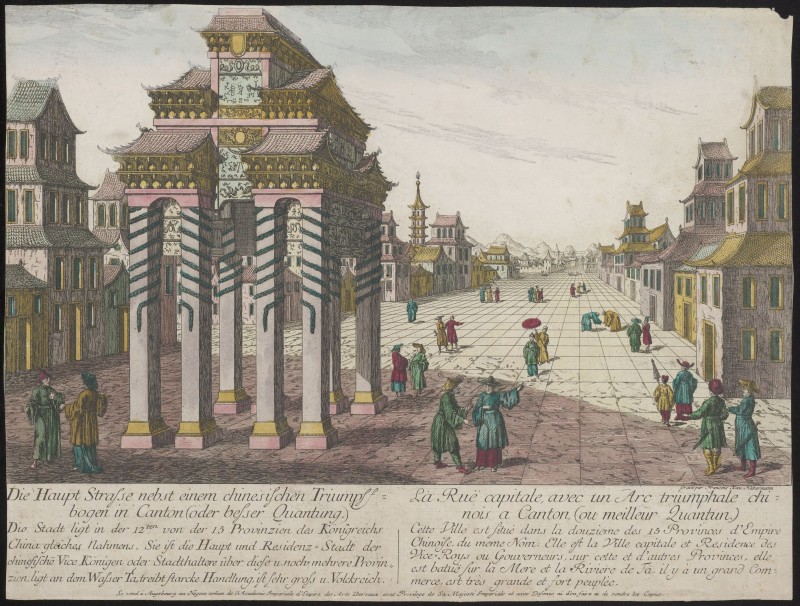 Gravé par François Xav. Habermann
Die Haupt Strasse nebst einem chinesischen Triumpff-
bogen in Canton (oder besser Quantung.)
Die Stadt ligt in der 12ten von der 15 Provinzien des Königreichs
China gleiches Nahmens. Sie ist die Haupt und Residenz-Stadt der
chinesische Vice Königen oder Stadthalten über diese u noch mehrere Provin-
zien. ligt an dem Wasser Ta, treibt starcke Handlung, ist sehr gross u. Volckreich.
La Ruë capitale, avec un Arc triumphale chi-
nois a Canton (ou meilleur Quantun.)
Cette Ville est situé dans la douzieme des 15 Provinces d'Empire
Chinoise, du meme Nom. Elle est la Ville capitale et Residence des
Vice-Roys ou Gouverneurs, sur cette et d'autres Provinces, elle
est batuë sur la Mere et la Riviere de Ta, il y à un grand Com-
merce, est très grande et fort peuplée.
Se vend à Augsbourg au Negoce comun de l'Academie Imperiale d'Empire des Arts liberaux avec Privilege de Sa Majesté Imperiale et avec Defense ni d'en faire ni de vendre les Copies.